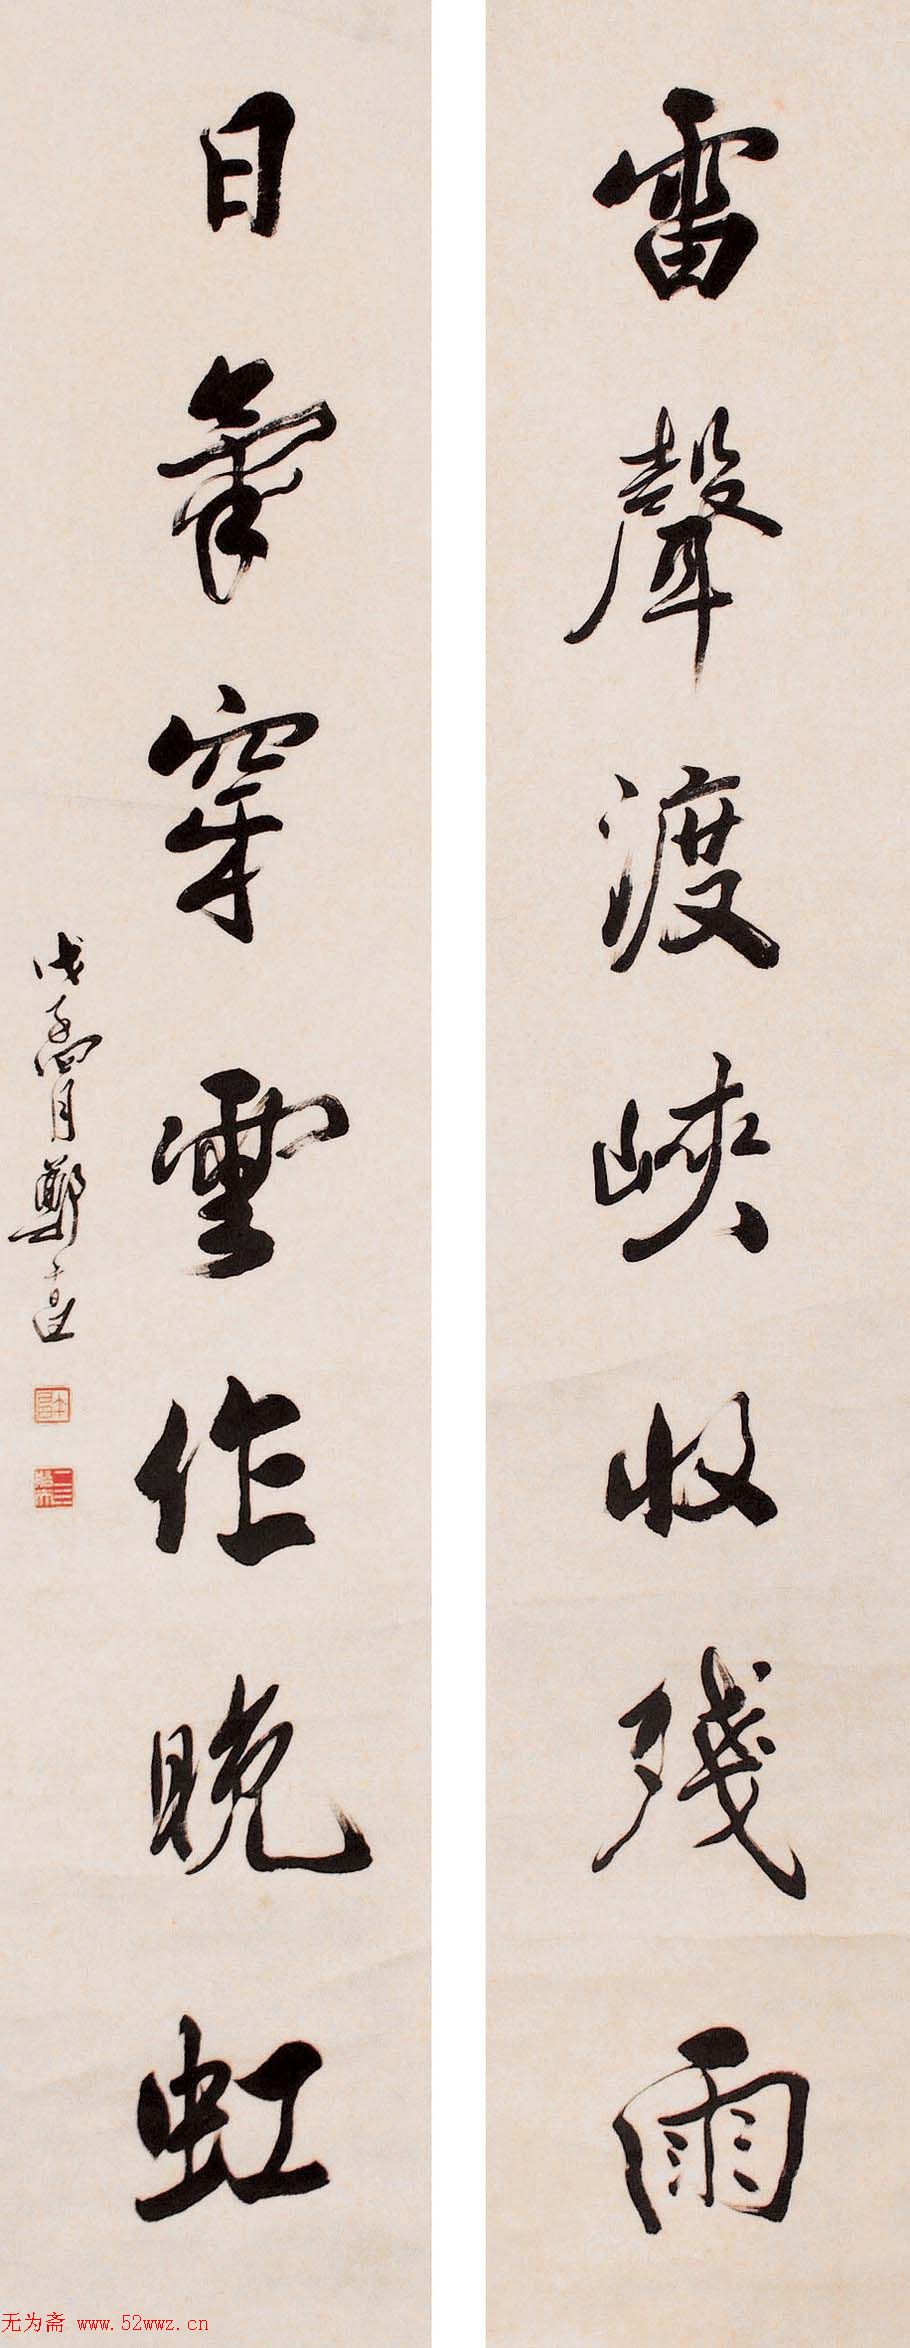 雷聲渡峽收殘雨
日氣穿雲作晚虹
戊子四月鄭午昌
无为斋 www.52wwz.cn